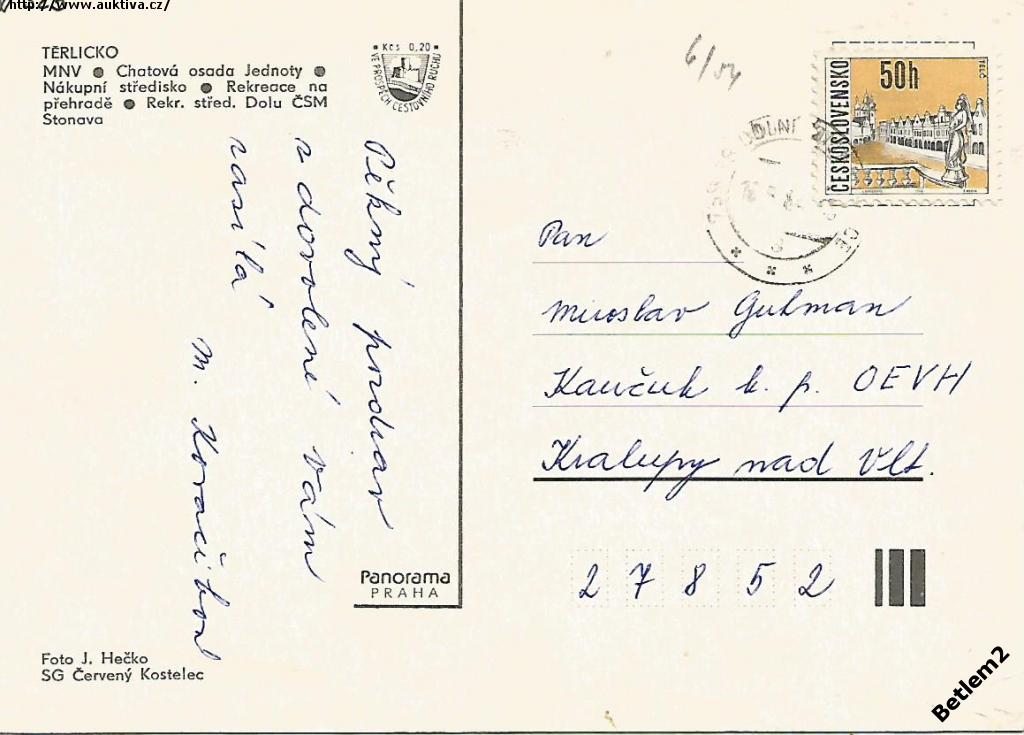 http://www.auktiva.cz/
TĚRLICKO
MNV ● Chatová osada Jednoty ●
Nákupní středisko ● Rekreace na
přehradě ● Rekr. střed. Dolu ČSM
Stonava
Kčs 0,20
VE PROSPĚCH CESTOVNÍHO RUCHU
6/54
ČESKOSLOVENSKO
50h
TELČ
DOLNÍ
Pěkný pozdrav
z dovolené vám
zasílá
M.
Pan
Miroslav Gutman
Kaučuk k. p. OEVH
Kralupy nad Vlt.
27852
Panorama
PRAHA
Foto J. Hečko
SG Červený Kostelec
Betlem2